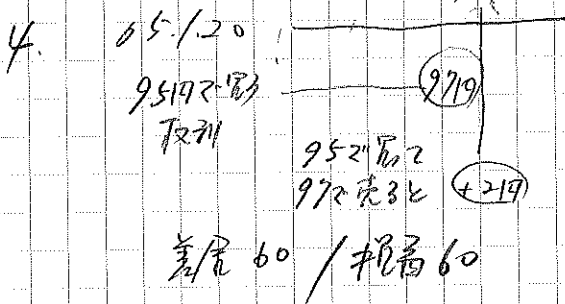 4. 65.1.20
95円で買う 97円
反対
95で買って
97で売ると +2円
差金 60 / 損益 60